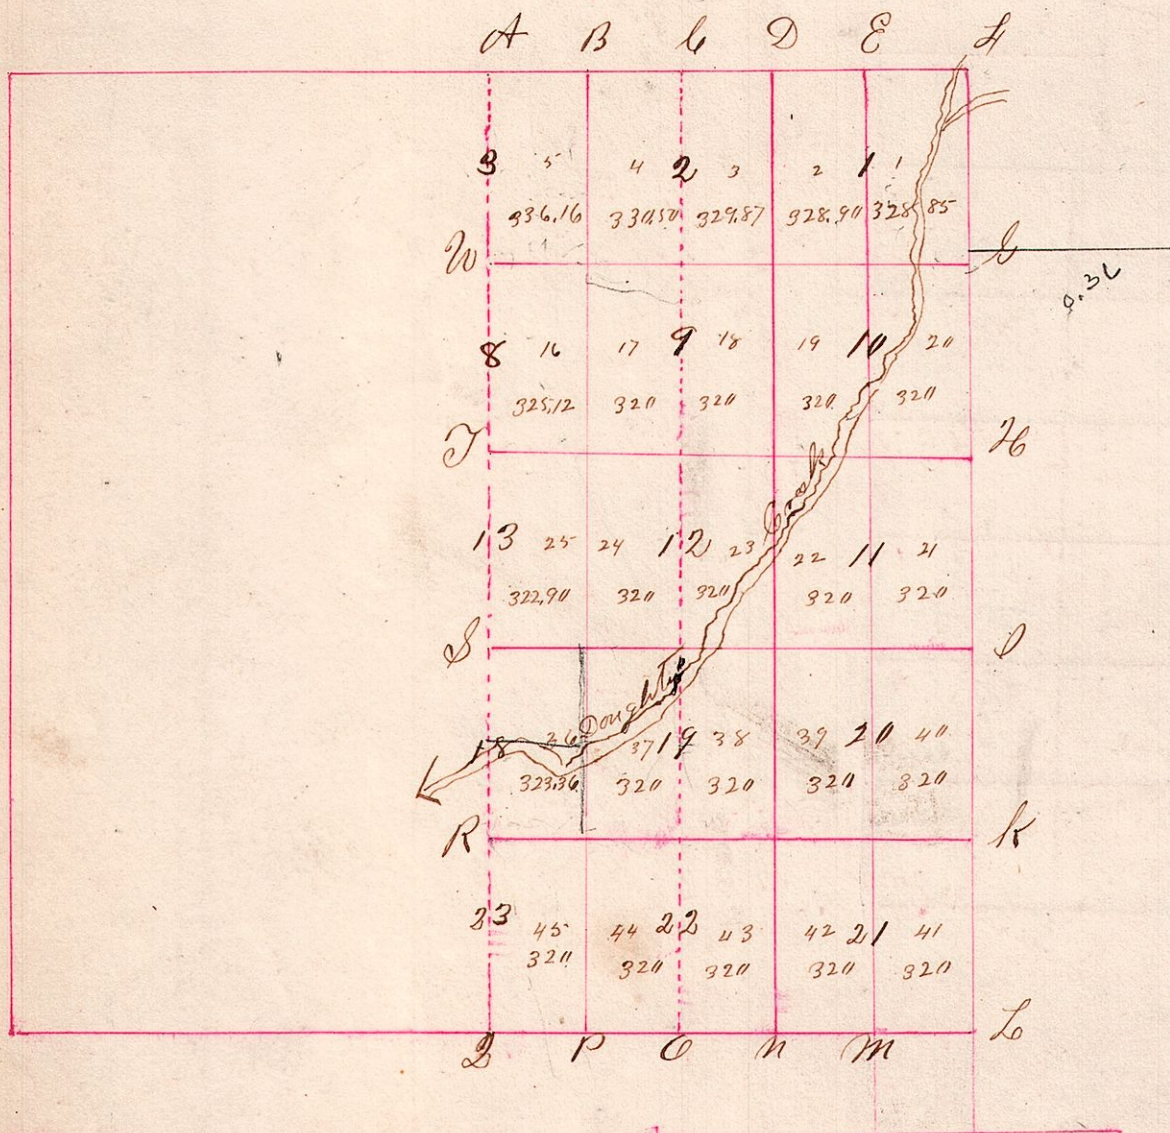 A B C D E F
3 5 4 2 3 2 1 1
336,16 330,50 329,87 328,90 328,85
W G
0.36
8 16 17 9 18 19 10 20
325,12 320 320 320 320
T H
Creek
13 25 24 12 23 22 11 21
322,90 320 320 320 320
S I
Doughty's
18 36 37 19 38 39 20 40
323,36 320 320 320 320
R K
23 45 44 22 43 42 21 41
320 320 320 320 320
L
Q P O N M